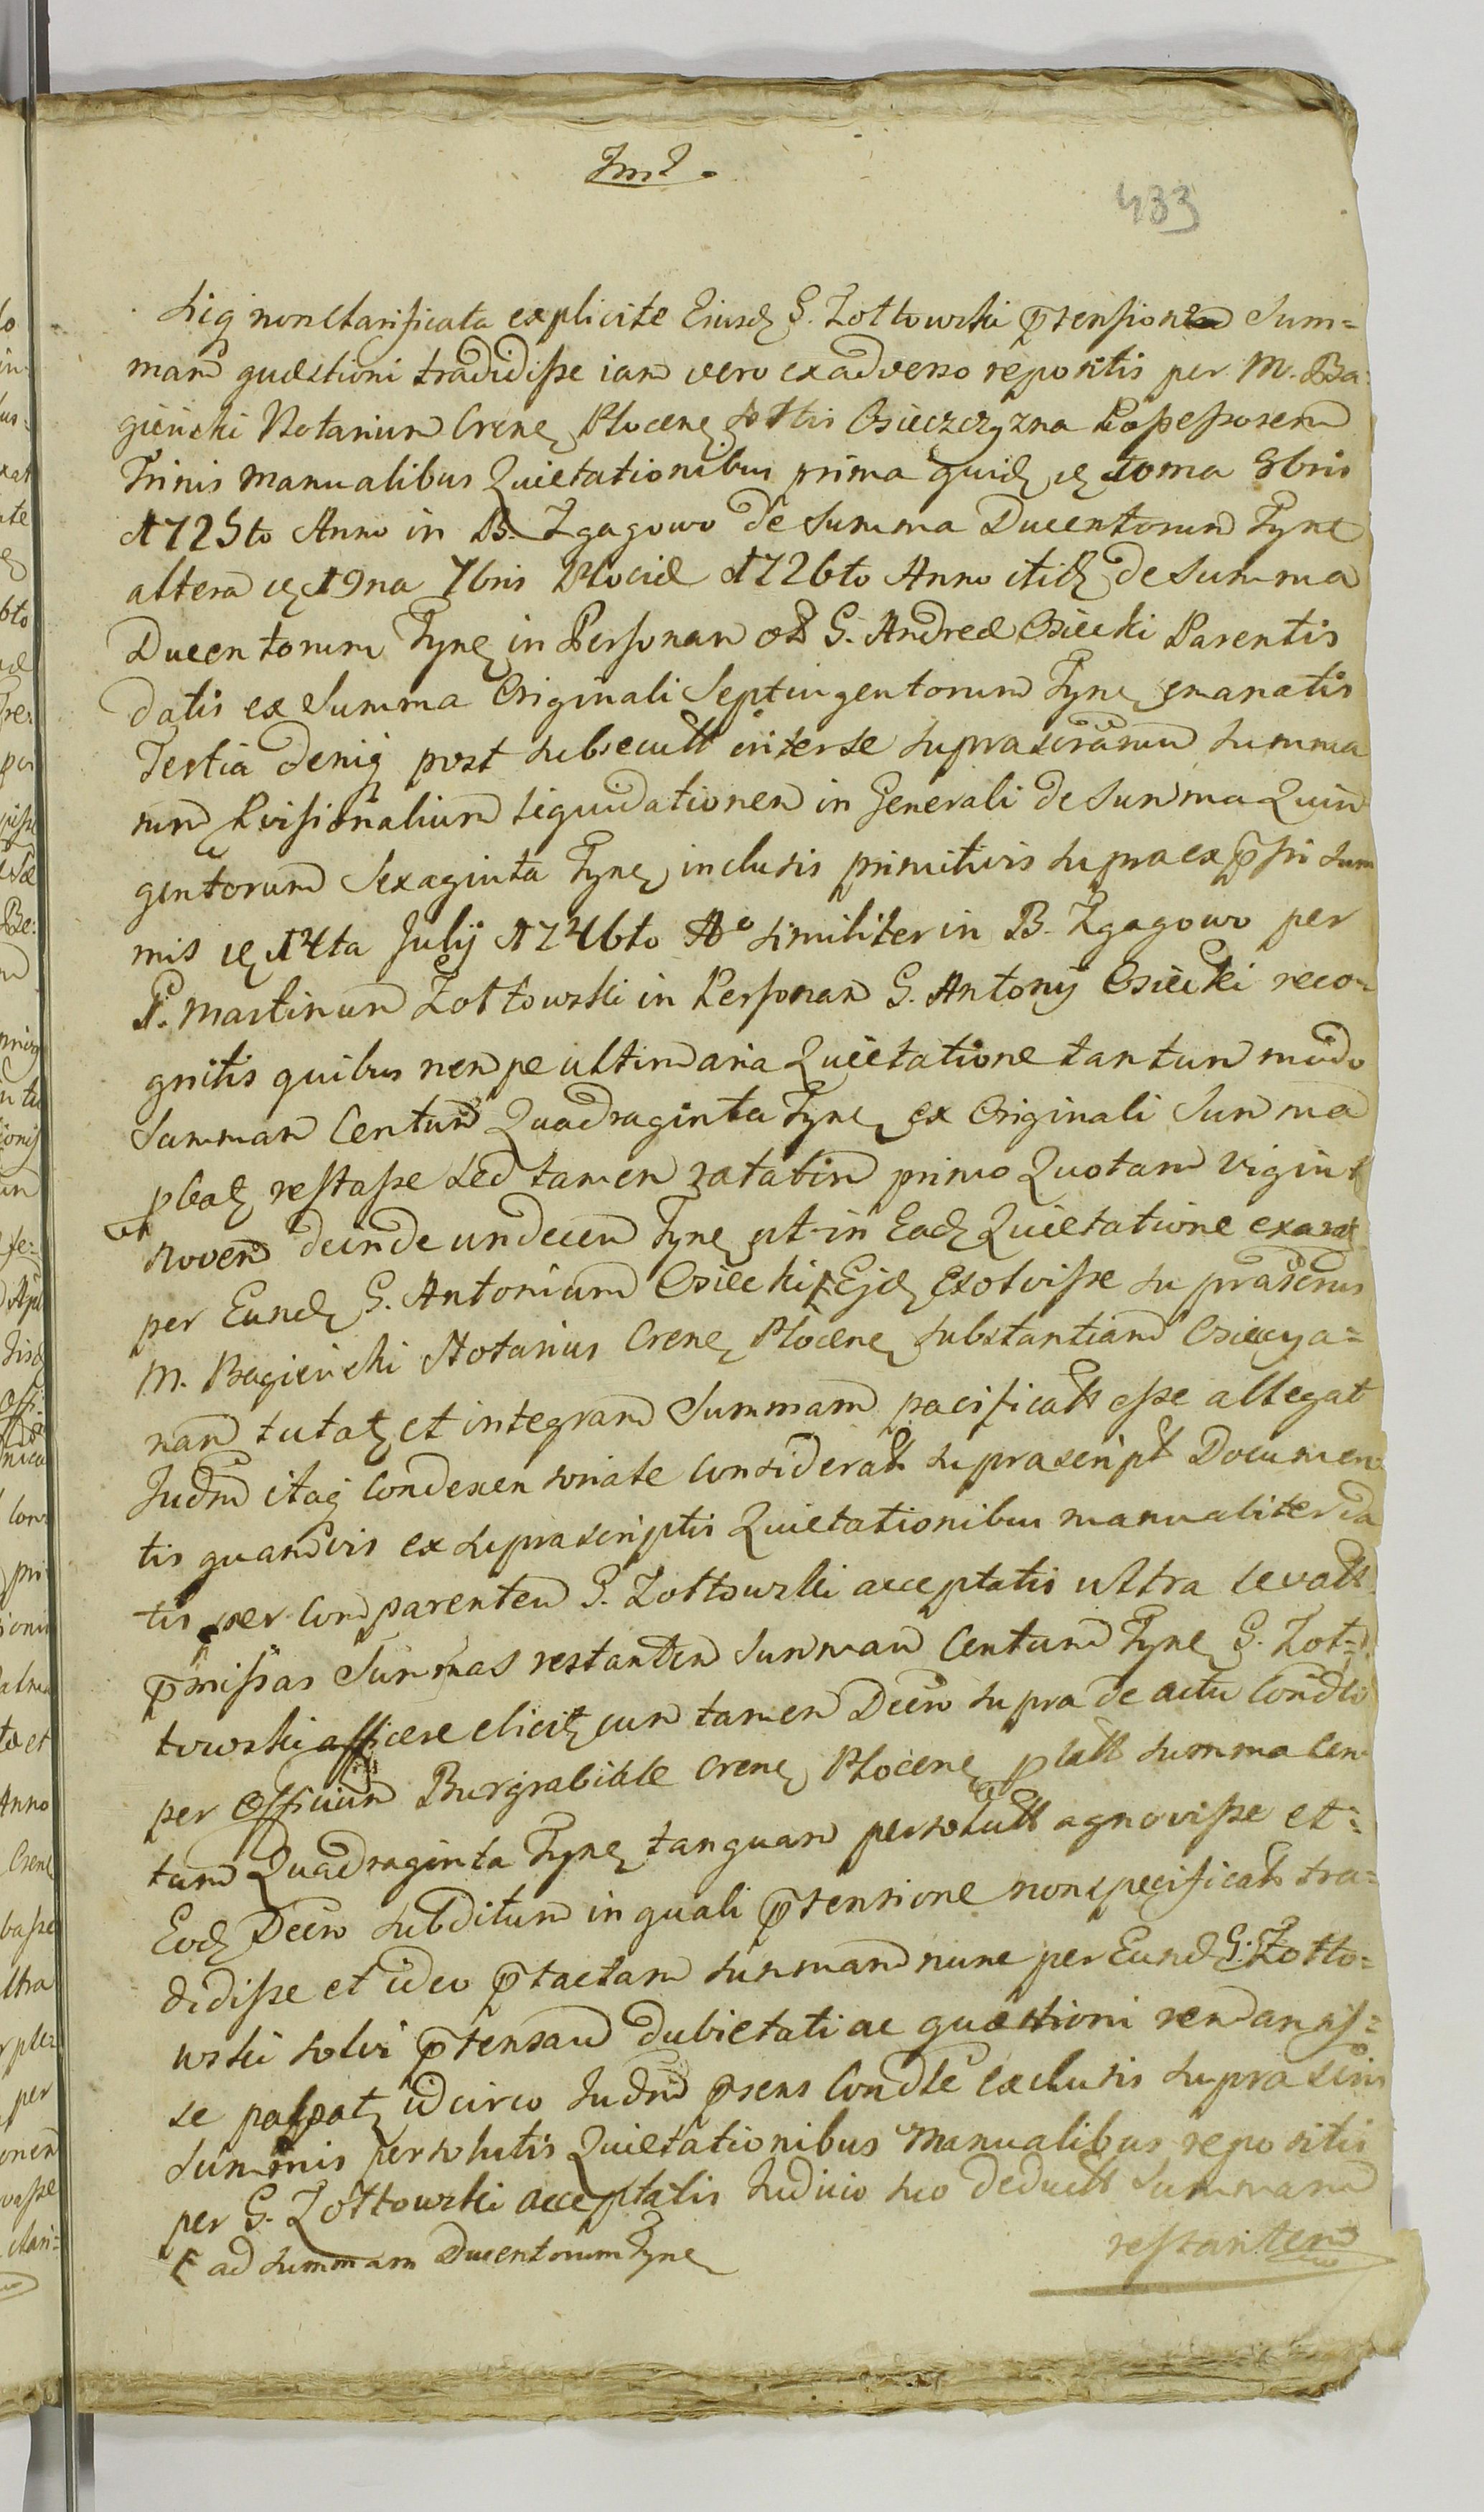 433
siq non clarificata explicite Eiusd G. Zottowski prtensionem Sum=
mam quæstioni tradidisse iam vero ex adverso repositis per M. Ba=
gieński Notarium Crene Plocene sortis Osieczczyzna Possessorem
Trinis Manualibus Quietationibus prima quid 10ma 8bris
1725to Anno in B. Zgagowo de Summa Ducentorum Tyne
altera 19na 7bris Plociæ 1726to Anno itid de Summa
Ducentorum Tyne in Personam G. Andreæ Osiecki Parentis
datis ex Summa Originali Septingentorum Tyne emanatis
Tertia deniq post subsecutt inter se suprascriarum summa
rum Pvisionalium liquidationem in Generali de Summa Quin
gentorum Sexaginta Tyne inclusis primitivis supraexpssi sum
mis 14ta Julij 1746to Ao similiter in B. Zgagowo per
P. Martinum Zottowski in Personam G. Antonij Osiecki reco=
gnitis quibus nempe ultimaria Quietatione tantum modo
Summam Centum Quadraginta Tyne ex Originali Summa
pbat restasse sed tamen ratatim primo Quotam viginti
Novem deinde undecem Tyne ut in Ead Quietatione exarat
per Eund G. Antonium Osiecki F Ejd Exolvisse suprascrius
M. Bagieński Notarius Crene Plocene substantiam Osieczya=
nam tutat et integram Summam pacificatt esse allegat
Judm itaq Condescensoriale Considerat suprascript Documen
tis quamvis ex suprascriptis Quietationibus manualiter da
tis per Comparentem G. Zottowski acceptatis ultra levatt
pmissas Summas restantem Summam Centum Tyne G. Zot=
towski afficere elicit cum tamen Decro supra de actu Condli
per Officium Burgrabiale Crene Plocene platt summa Cen
tum Quadraginta Tyne tanquam persolutt agnovisse et=
Eod Decro subditum in quali prtensione non specificat tra=
didisse et ideo prtactam summam nunc per Eund G. Zotto=
wski solvi prtensam dubietati ac quæstioni remansis=
se palpat idcirco Judm prsens Condle exclusis suprascriis
Summis persolutis Quietationibus Manualibus repositis
per G. Zottowski acceptatis Judicio suo deductt Summam
restantem
F ad summam Ducentorum Tyne